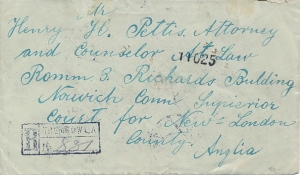 Mr
Henry H. Pettis, Attorney
and Counselor At Law
11025
Romm 3. Richards Bulding
Norwich Conn Superior
Court for New-London
County. Anglia
№ 831